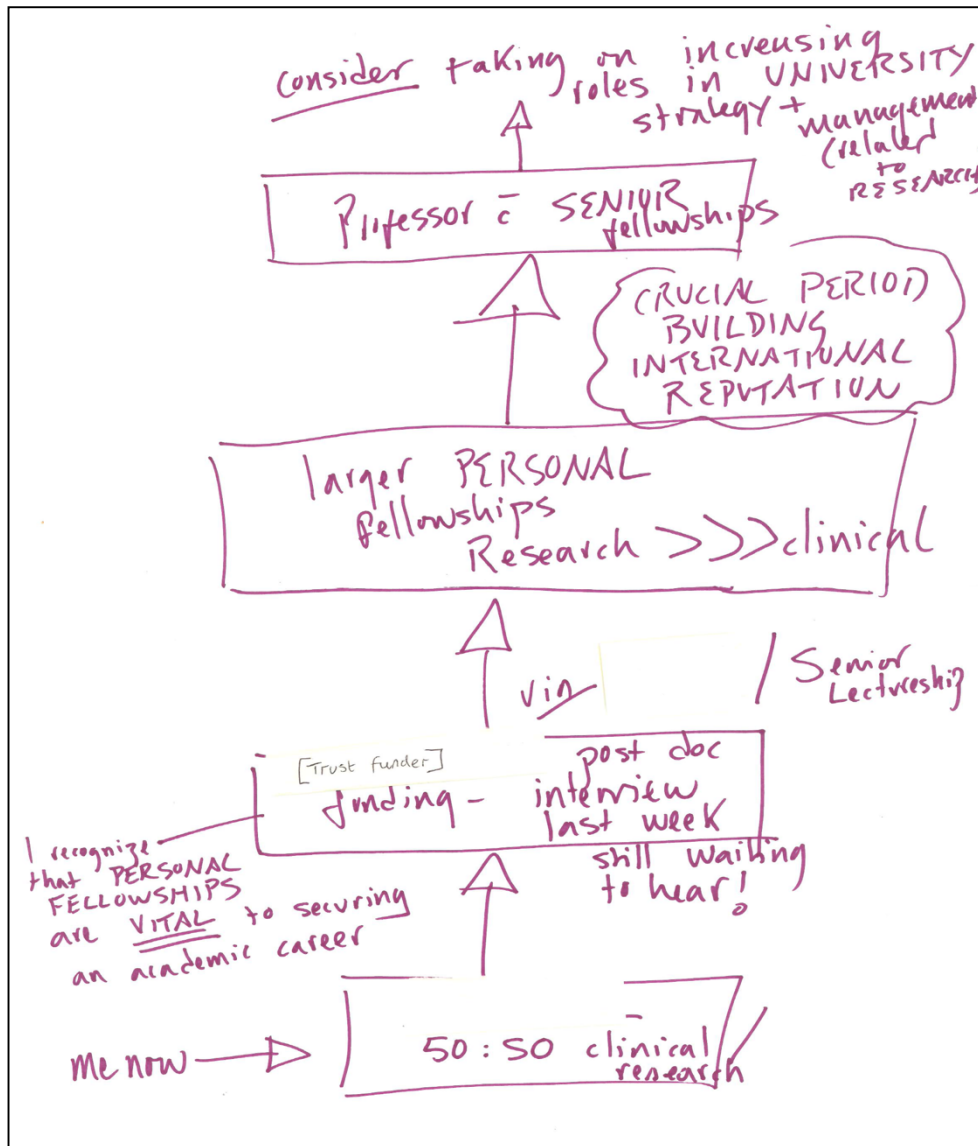 consider taking on increasing
roles in UNIVERSITY
strategy +
management
(related
to
RESEARCH)
Professor c̄ SENIOR
fellowships
CRUCIAL PERIOD
BUILDING
INTERNATIONAL
REPUTATION
larger PERSONAL
fellowships
Research >>> clinical
via / Senior
Lectureship
[Trust funder] post doc
funding - interview
last week
still waiting
to hear!
I recognize
that PERSONAL
FELLOWSHIPS
are VITAL to securing
an academic career
me now
50:50 clinical
research